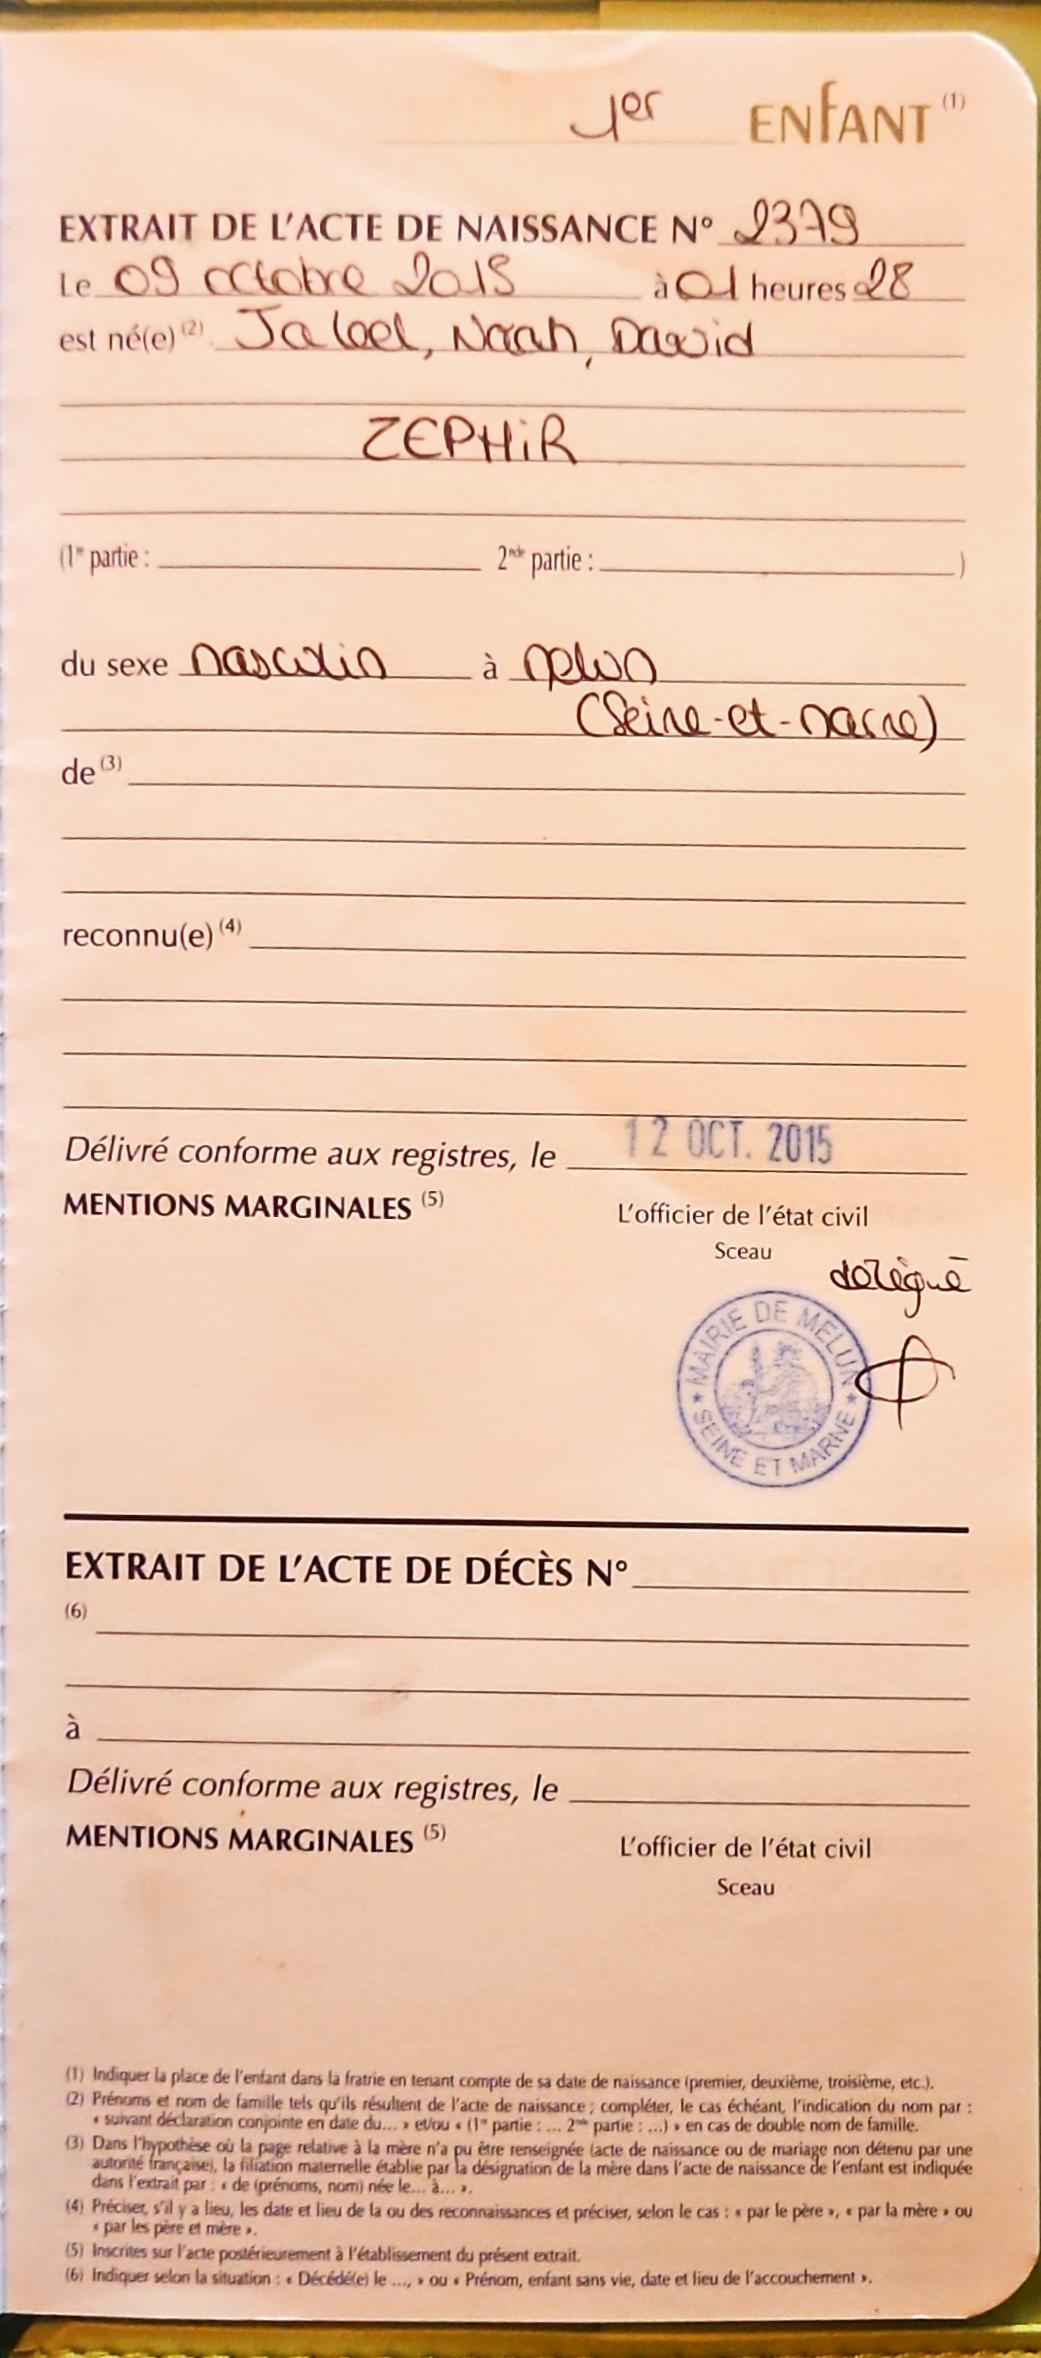 1er ENFANT (1)
EXTRAIT DE L'ACTE DE NAISSANCE N° 2379
Le 09 octobre 2015 à 01 heures 28
est né(e) (2) Jaleel, Noah, David
ZEPHIR
(1re partie : 2nde partie : )
du sexe masculin à Melun
(Seine-et-Marne)
de (3)
reconnu(e) (4)
Délivré conforme aux registres, le 12 OCT. 2015
MENTIONS MARGINALES (5) L'officier de l'état civil
Sceau
délégué
MAIRIE DE MELUN
SEINE ET MARNE
EXTRAIT DE L'ACTE DE DÉCÈS N°
(6)
à
Délivré conforme aux registres, le
MENTIONS MARGINALES (5) L'officier de l'état civil
Sceau
(1) Indiquer la place de l'enfant dans la fratrie en tenant compte de sa date de naissance (premier, deuxième, troisième, etc.).
(2) Prénoms et nom de famille tels qu'ils résultent de l'acte de naissance ; compléter, le cas échéant, l'indication du nom par :
« suivant déclaration conjointe en date du... » et/ou « (1re partie : ... 2nde partie : ...) » en cas de double nom de famille.
(3) Dans l'hypothèse où la page relative à la mère n'a pu être renseignée (acte de naissance ou de mariage non détenu par une
autorité française), la filiation maternelle établie par la désignation de la mère dans l'acte de naissance de l'enfant est indiquée
dans l'extrait par : « de (prénoms, nom) née le... à... ».
(4) Préciser, s'il y a lieu, les date et lieu de la ou des reconnaissances et préciser, selon le cas : « par le père », « par la mère » ou
« par les père et mère ».
(5) Inscrites sur l'acte postérieurement à l'établissement du présent extrait.
(6) Indiquer selon la situation : « Décédé(e) le ..., » ou « Prénom, enfant sans vie, date et lieu de l'accouchement ».